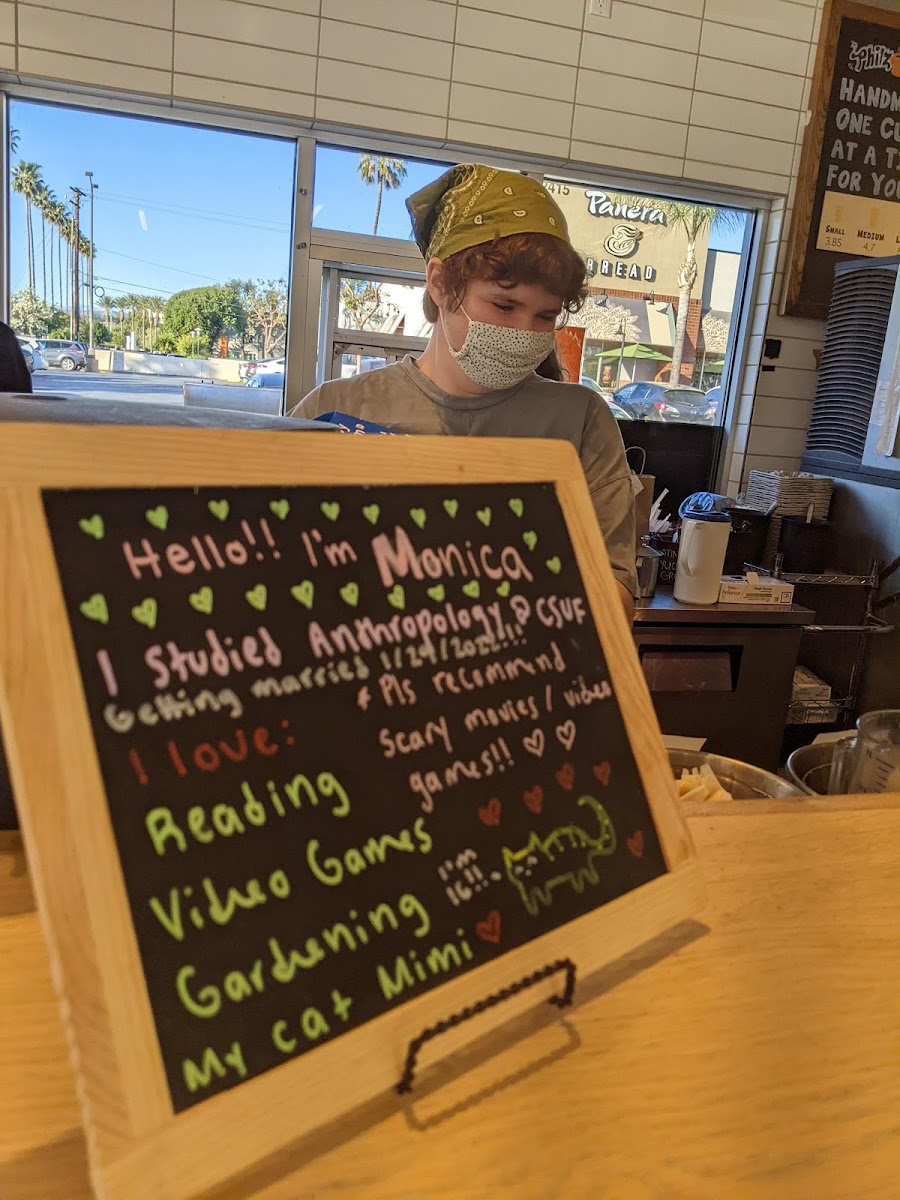 2415
Panera
BREAD
Philz
HANDM
ONE CU
AT A T
FOR YO
SMALL MEDIUM L
3.85 4.7
Hello!! I'm Monica
I Studied Anthropology @ CSUF
Getting married 1/29/2022!!!
I love:
Reading
Video Games
Gardening
My cat Mimi
* Pls recommend
scary movies/video
games!!
I'm
16!!